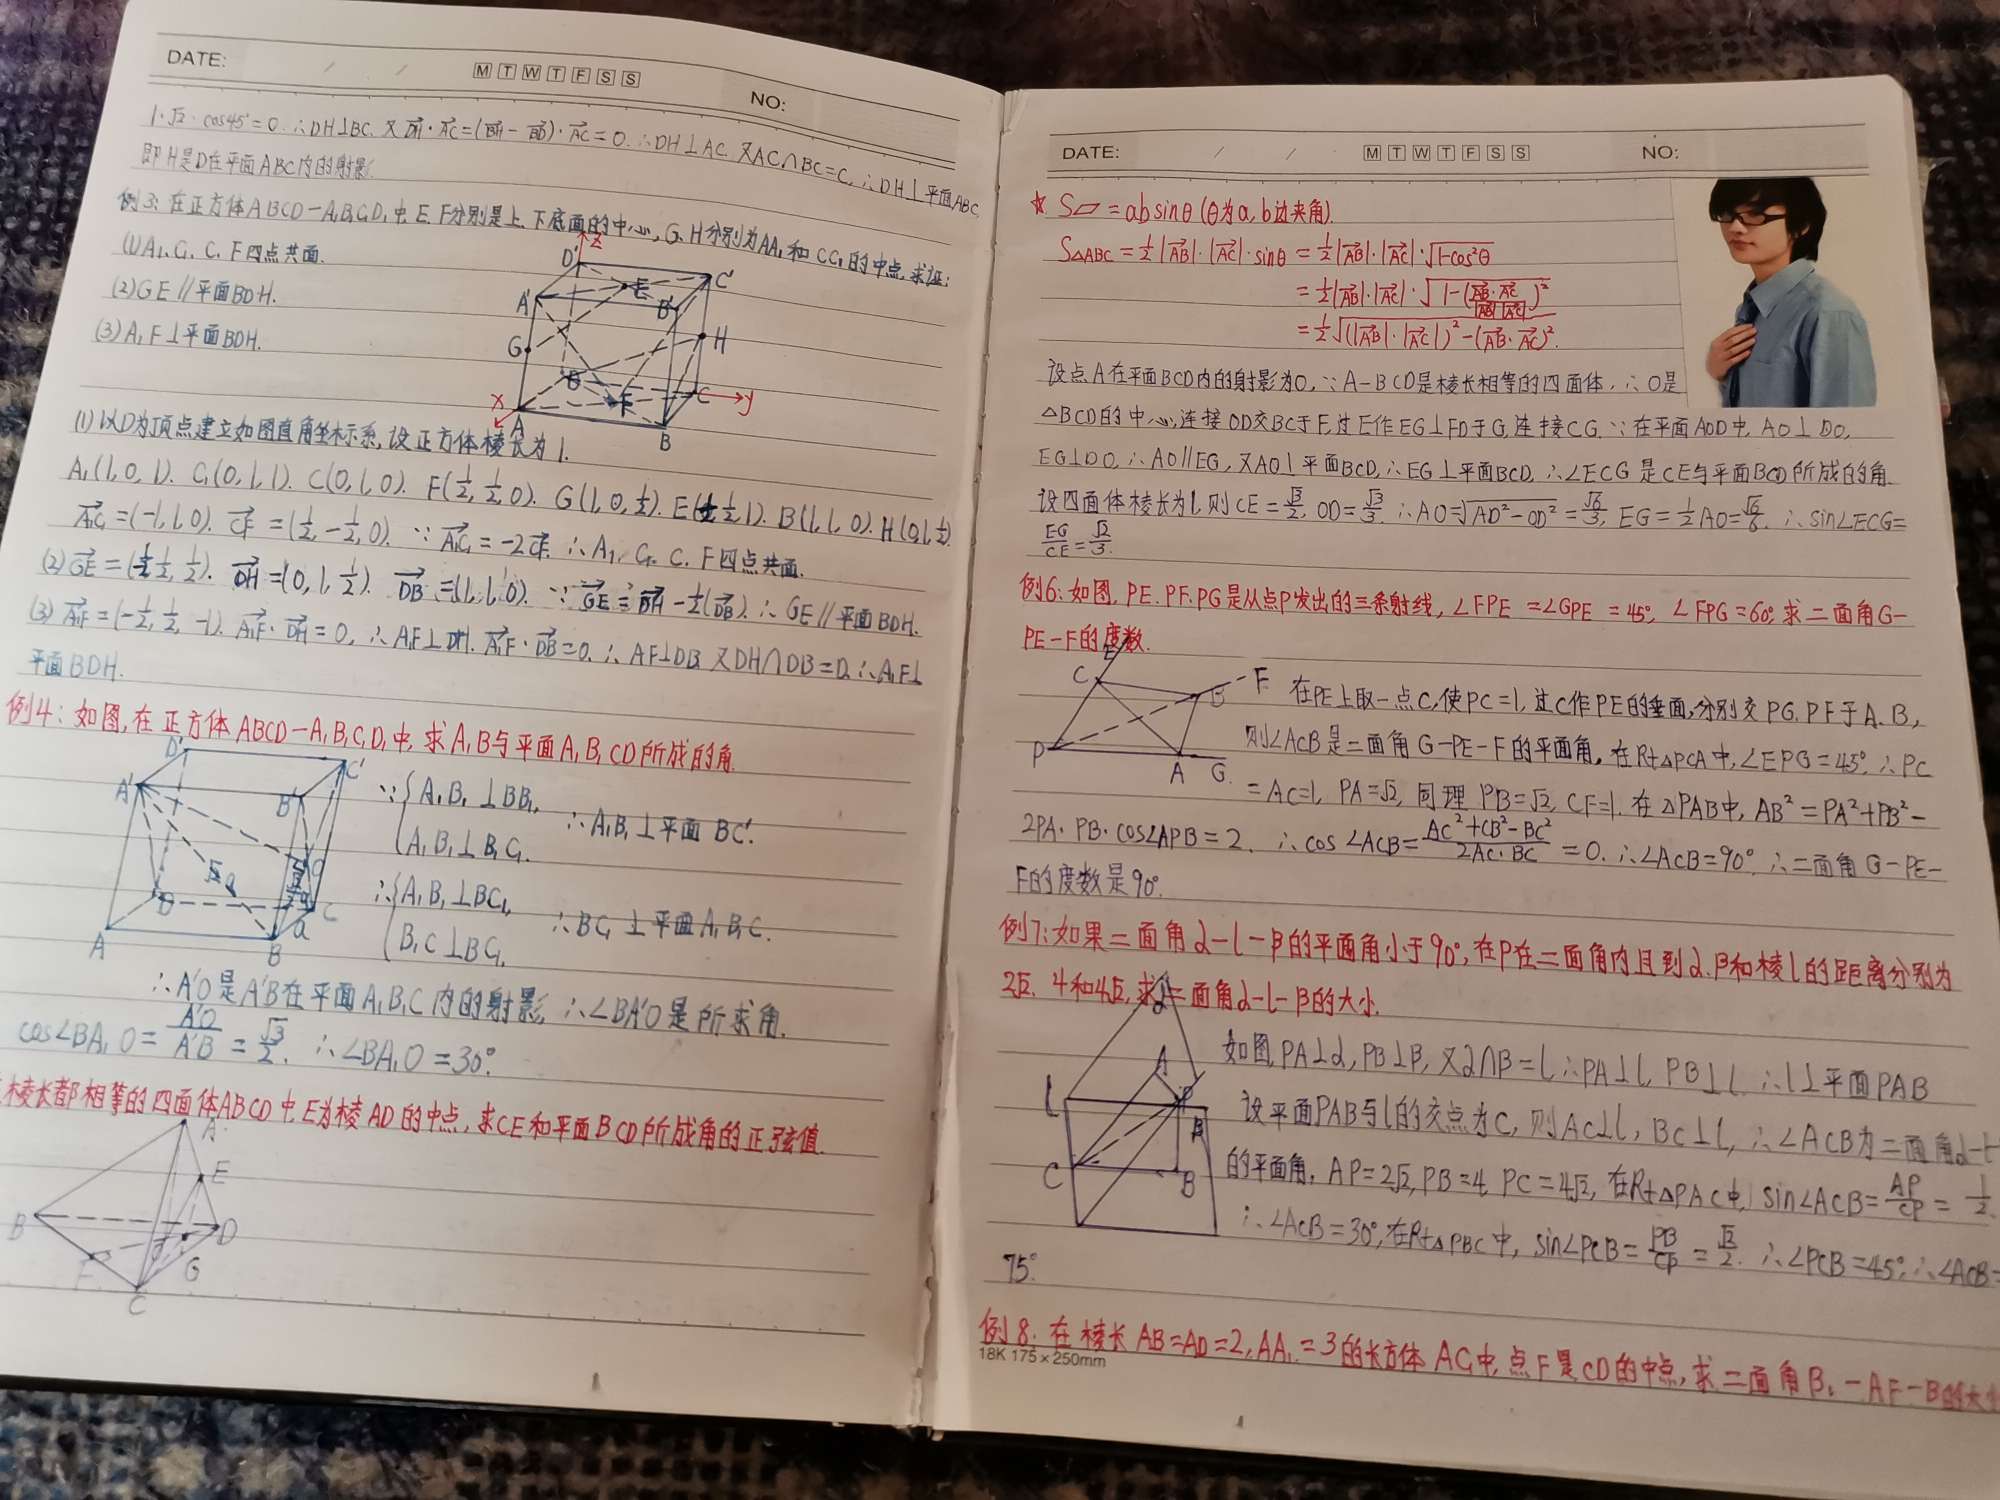 DATE: / / M T W T F S S NO:
1·√2·cos45°=0.∴DH⊥BC.又DH·AC=(BH-BD)·AC=0.∴DH⊥AC.又AC∩BC=C.∴DH⊥平面ABC,
即H是D在平面ABC内的射影.
例3:在正方体ABCD-A₁B₁C₁D₁中,E.F分别是上.下底面的中心,G.H分别为AA₁和CC₁的中点.求证:
(1)A₁.C₁.C.F四点共面.
(2)GE∥平面BDH.
(3)A₁F⊥平面BDH.
D' z C' A' E B' G H D F C y x A B
(1)以D为顶点建立如图直角坐标系,设正方体棱长为1.
A₁(1,0,1). C₁(0,1,1). C(0,1,0). F(½,½,0). G(1,0,½). E(½,½,1). B(1,1,0). H(0,1,½).
A₁C₁=(-1,1,0). CF=(½,-½,0). ∵A₁C₁=-2CF.∴A₁,C₁.C.F四点共面.
(2)GE=(-½,½,½). DH=(0,1,½). DB=(1,1,0). ∵GE=DH-½(DB).∴GE∥平面BDH.
(3)A₁F=(-½,½,-1).A₁F·DH=0,∴A₁F⊥DH.A₁F·DB=0.∴A₁F⊥DB.又DH∩DB=D.∴A₁F⊥
平面BDH.
例4:如图,在正方体ABCD-A₁B₁C₁D₁中,求A₁B与平面A₁B₁CD所成的角.
D' C' A' B' O √2a D C A B a
∵{A₁B₁⊥BB₁, A₁B₁⊥B₁C₁. ∴A₁B₁⊥平面BC'.
∴{A₁B₁⊥BC₁, B₁C⊥BC₁, ∴BC₁⊥平面A₁B₁C.
∴A'O是A'B在平面A₁B₁C内的射影,∴∠BA'O是所求角.
cos∠BA₁O=A'O/A'B=√3/2. ∴∠BA₁O=30°.
棱长都相等的四面体ABCD中,E为棱AD的中点,求CE和平面BCD所成角的正弦值.
A E B D F G C
DATE: / / M T W T F S S NO:
★ S▱=absinθ(θ为a,b边夹角).
S△ABC=½|AB|·|AC|·sinθ=½|AB|·|AC|·√(1-cos²θ)
=½|AB|·|AC|·√(1-(AB·AC/|AB||AC|)²)
=½√((|AB|·|AC|)²-(AB·AC)²).
设点A在平面BCD内的射影为O,∵A-BCD是棱长相等的四面体.∴O是
△BCD的中心,连接OD交BC于F,过E作EG⊥FD于G,连接CG.∵在平面AOD中,AO⊥DO,
EG⊥DO.∴AO∥EG,又AO⊥平面BCD,∴EG⊥平面BCD,∴∠ECG是CE与平面BCD所成的角.
设四面体棱长为1,则CE=√3/2,OD=√3/3.∴AO=√(AD²-OD²)=√6/3,EG=½AO=√6/6.∴sin∠ECG=
EG/CE=√2/3.
例6:如图,PE.PF.PG是从点P发出的三条射线,∠FPE=∠GPE=45°,∠FPG=60°,求二面角G-
PE-F的度数.
E C B F P A G
在PE上取一点C,使PC=1,过C作PE的垂面,分别交PG.PF于A.B,
则∠ACB是二面角G-PE-F的平面角,在Rt△PCA中,∠EPG=45°.∴PC
=AC=1,PA=√2,同理PB=√2,CF=1.在△PAB中,AB²=PA²+PB²-
2PA·PB·cos∠APB=2.∴cos∠ACB=AC²+CB²-BC²/2AC·BC=0.∴∠ACB=90°.∴二面角G-PE-
F的度数是90°.
例7:如果二面角α-l-β的平面角小于90°,在P在二面角内且到α.β和棱l的距离分别为
2√2.4和4√2,求二面角α-l-β的大小.
α A P l β C B
如图,PA⊥α,PB⊥β,又α∩β=l∴PA⊥l,PB⊥l.∴l⊥平面PAB
设平面PAB与l的交点为C,则AC⊥l,BC⊥l,∴∠ACB为二面角α-l-
的平面角,AP=2√2,PB=4,PC=4√2,在Rt△PAC中,sin∠ACB=AP/CP=1/2.
∴∠ACB=30°,在Rt△PBC中,sin∠PCB=PB/CP=√2/2.∴∠PCB=45°,∴∠ACB=
75°.
例8:在棱长AB=AD=2,AA₁=3的长方体AC₁中,点F是CD的中点,求二面角B₁-AF-B的大小
18K 175×250mm